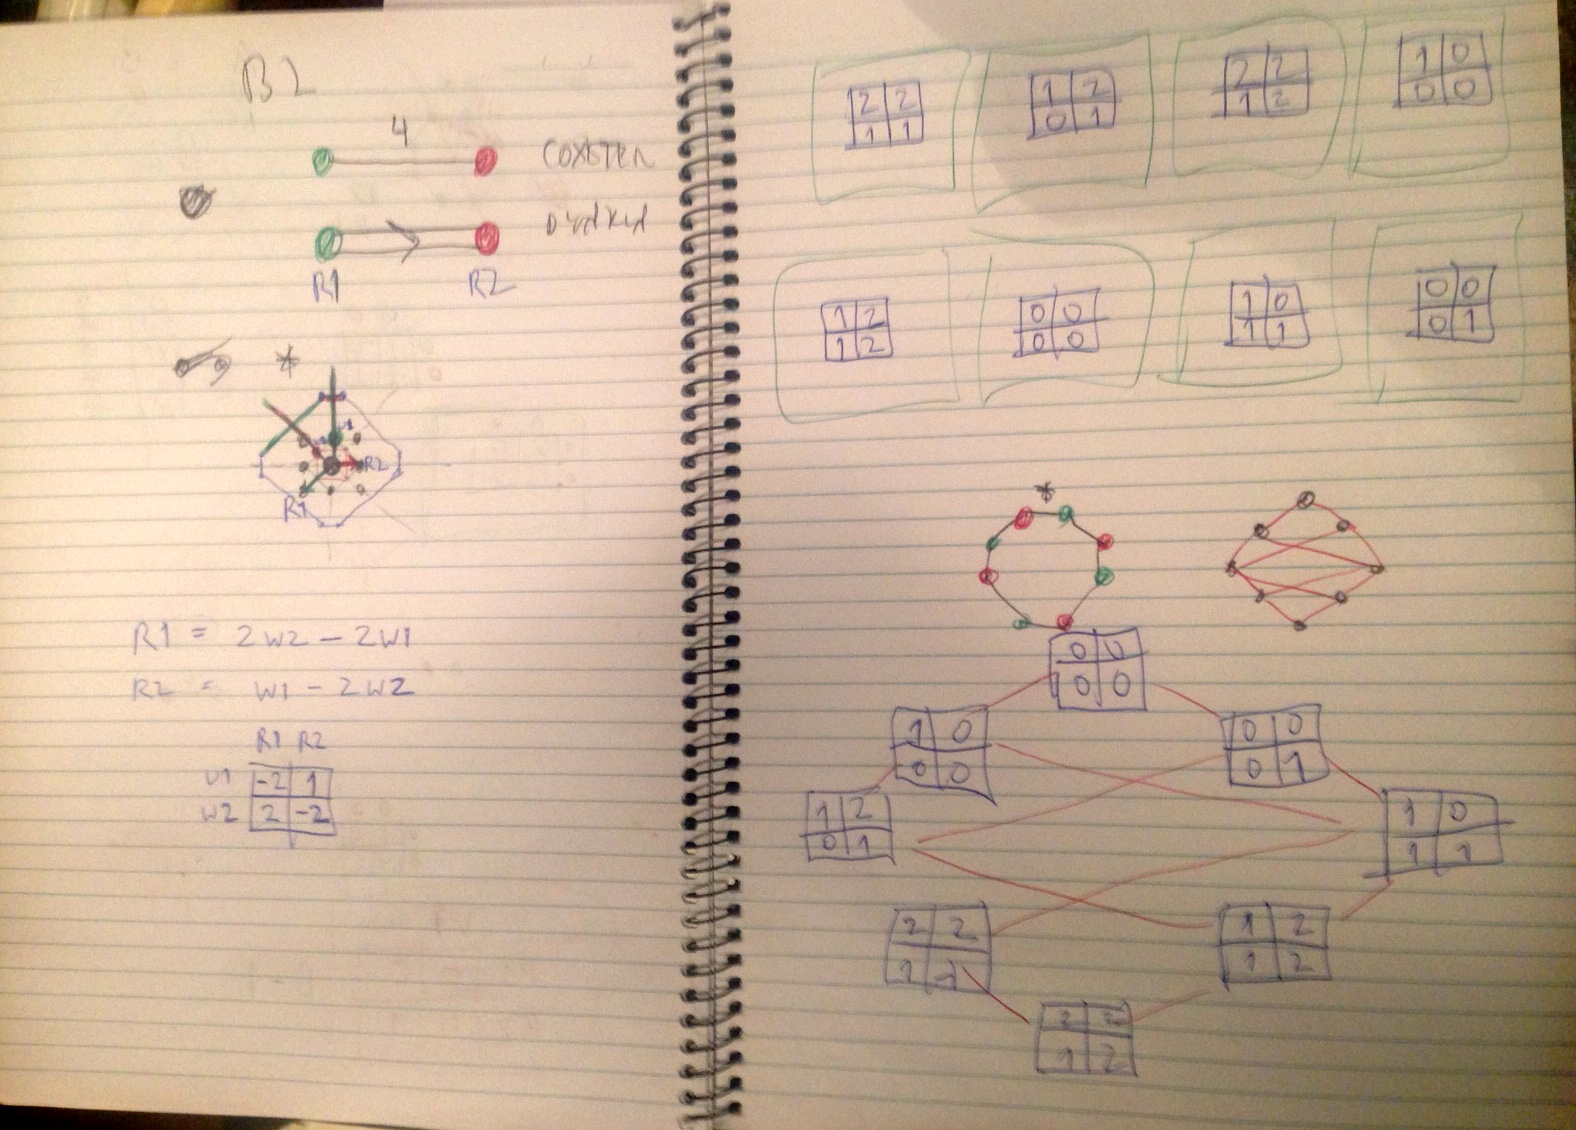 B2
4
COXETER
DYNKIN
R1 R2
*
W1
R2
R1
R1 = 2W2 - 2W1
R2 = W1 - 2W2
R1 R2
W1 -2 1
W2 2 -2
2 2
1 1
1 2
0 1
2 2
1 2
1 0
0 0
1 2
1 2
0 0
0 0
1 0
1 1
0 0
0 1
*
0 0
0 0
1 0
0 0
0 0
0 1
1 2
0 1
1 0
1 1
2 2
1 1
1 2
1 2
2 2
1 2